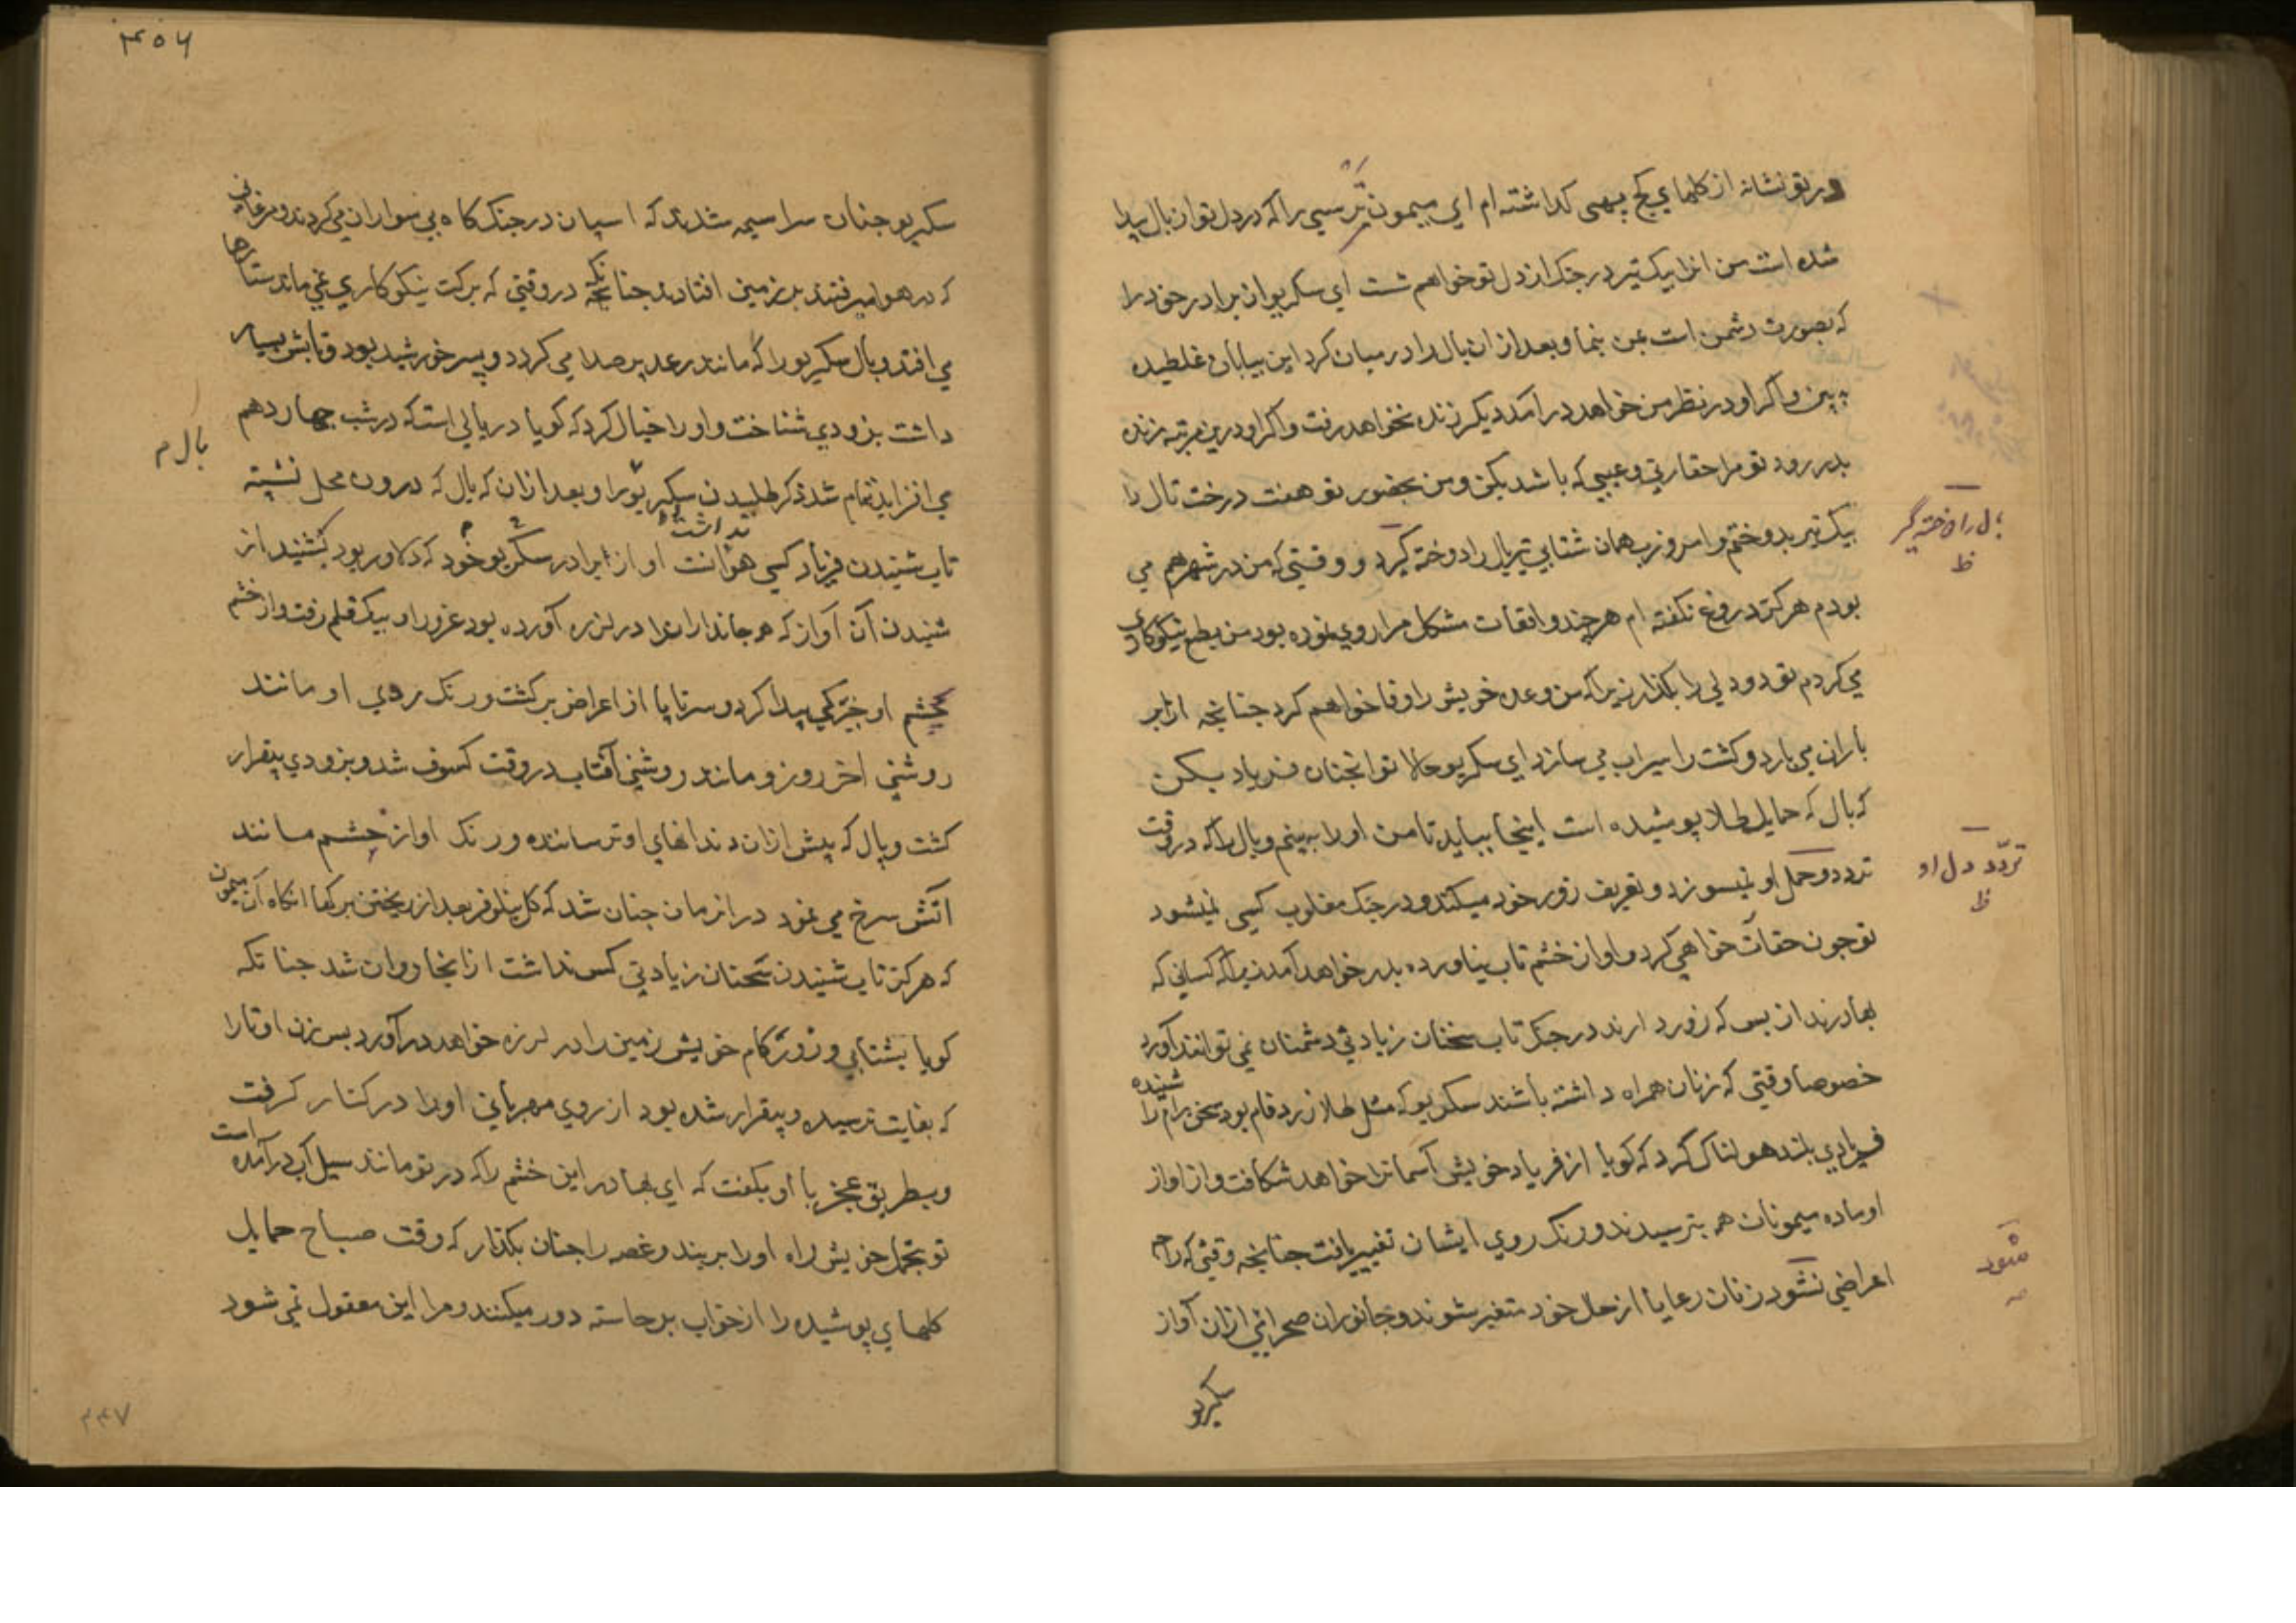 در تو نشانه از کلهای کج پهی کداشته ام ای میمون ترسی را که در دل تو از بال پیدا
شده است من انرا بیک تیر در جنک از دل تو خواهم شست ای سکریو ان برادر خود را
که بصورت دشمن است بمن بنما و بعد از ان بال را در میان کرد این بیابان غلطیده
به بین و اکر او در نظر من خواهد در امد دیکر زنده نخواهد رفت و اکر او درین مرتبه زنده
بدر رود تو مرا حقارتی و عیبی که باشد بکن و من بحضور تو هفت درخت تال را
بیک تیر بدوختم و امروز ب همان شتابی تیر بال را دوخته کیرد و وقتیکه من در شهر هم می
بال را دوخته گیر
ظ
بودم هرکز دروغ نکفته ام هر چند واقعات مشکل مرا روی نموده بود من بطمع نیکوکاری
می کردم تو دو دلی را بکذار زیرا که من وعده خویش را وفا خواهم کرد جنانجه از ابر
باران می بارد و کشت را سیراب می سازد ای سکریو حالا تو انجنان فریاد بکن
که بال که حمایل طلا پوشیده است اینجا بیاید تا من او را به بینم و بال را که در وقت
تردد و حمل او نمیسوزد و تعریف زور خود میکند و در جنک مغلوب کسی نمیشود
تردّد دل او
ظ
تو جون حقارت خواهی کرد و او از خشم تاب نیاورده بدر خواهد آمد زیرا که کسانی که
بهادرند از بس که زور دارند در جنک تاب سخنان زیادتی دشمنان نمی توانند آورد
خصوصا وقتی که زنان همراه داشته باشند سکریو که مثل طلا زرد فام بود سخن رام را شنیده
فریادی بلند هولناک کرد که کویا از فریاد خویش آسمانرا خواهد شکافت و از اواز
او ماده میمونان هم بترسیدند و رنک روی ایشان تغییر یافت جنانجه وقتی که راجه
اعراضی نشود زنان رعایا از حال خود متغیر شوند و جانوران صحرائی ازان آواز
شود
سکریو
۴۵۶
سکریو جنان سراسیمه شدند که اسپان در جنک کاه بی سواران می کردند و مرغانی
که در هوا میرفتند بر زمین افتادند جنانکه در وقتی که برکت نیکوکاری نمی ماند ستارها
می افتد و بال سکریو را که مانند رعد پر صدا می کردد و پسر خورشید بود و تابش بسیار
داشت بزودی شناخت و او را خیال کرد که کویا دریائی است که در شب جهاردهم
بال م
می افزاید تمام شد ذکر طلبیدن سکریو را و بعد ازان که بال که درون محل نشسته
تاب شنیدن فریاد کسی نداشت او از برادر سکریو خود که دلاور بود بشنید از
شنیدن آن آواز که هر جاندارانرا در لرزه آورده بود غرور او بیک قلم رفت و از خشم
بخشم او خیرکی پیدا کرد و سرتاپا از اعراض برکشت و رنک روی او مانند
روشنی اخر روز و مانند روشنی آفتاب در وقت کسوف شد و بزودی بیقرار
کشت و بال که پیش ازان دندانهای او ترساننده و رنک او از خشم مانند
اتش سرخ می نمود در انزمان جنان شد که کل نیلوفر بعد از ریختن برکها انکاه آن میمون
که هرکز تاب شنیدن سخنان زیادتی کس نداشت از انجا روان شد جنانکه
کویا بشتابی و زور کام خویش زمین را در لرزه خواهد درآورد بس زن او تارا
که بغایت ترسیده و بیقرار شده بود از روی مهربانی او را در کنار کرفت
و بطریق عجز با او بکفت که ای بهادر این خشم را که در تو مانند سیل آب درآمده است
تو بتحمل خویش راه او را بر بند و غصه را جنان بکذار که وقت صباح حمایل
کلهای پوشیده را از خواب برخاسته دور میکنند و مرا این معقول نمی شود
۴۴۷